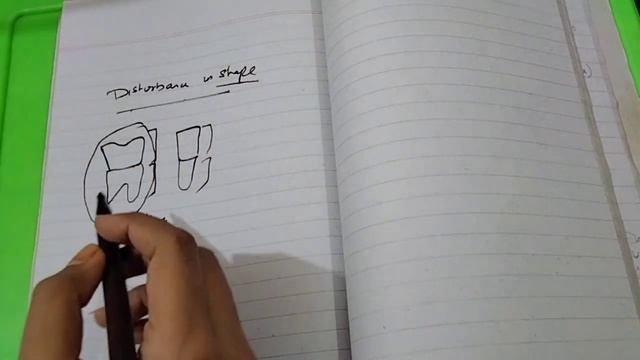 Disturbance in shape